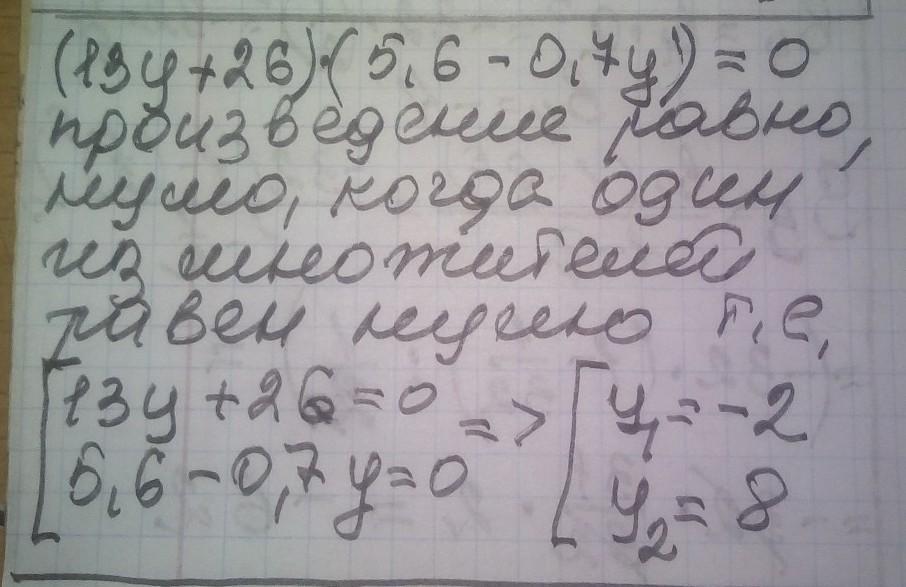 (13y+26)·(5,6-0,7y)=0
произведение равно,
нулю, когда один
из множителей
равен нулю т.е.
[13y+26=0 => [y₁=-2
5,6-0,7y=0 y₂=8